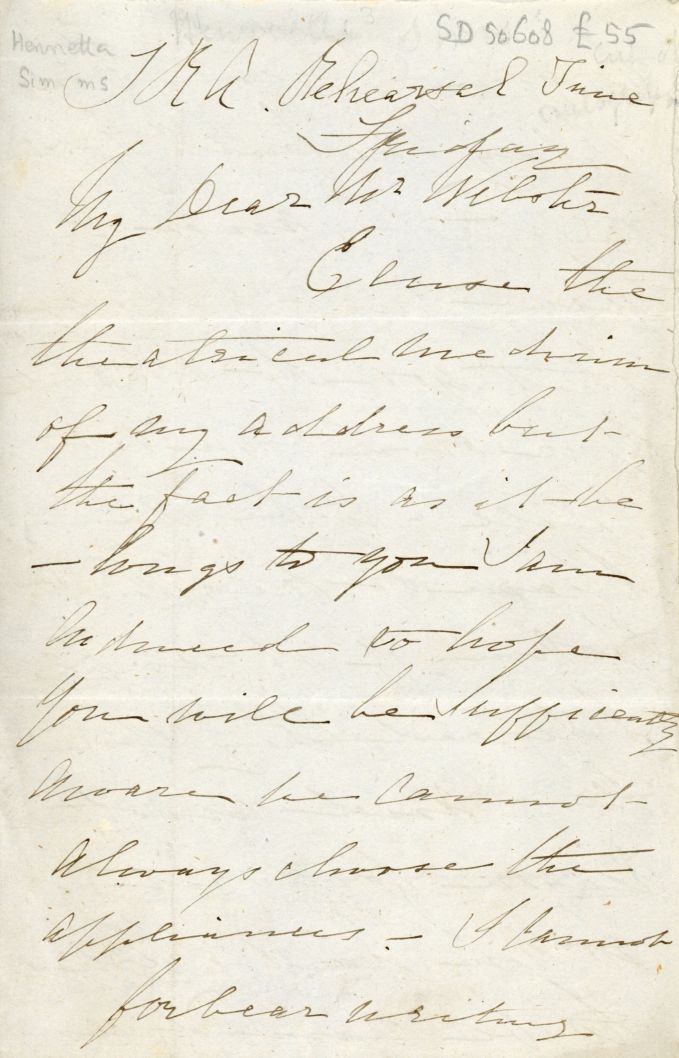 SD 50608 £55
Henrietta
Simms
T R A. Rehearsal Time
Friday
My Dear Mr Webster
Excuse the
theatrical medium
of my address but
the fact is as it be
-longs to you I am
induced to hope
You will be sufficiently
aware we cannot
always choose the
appliances - I cannot
forbear writing